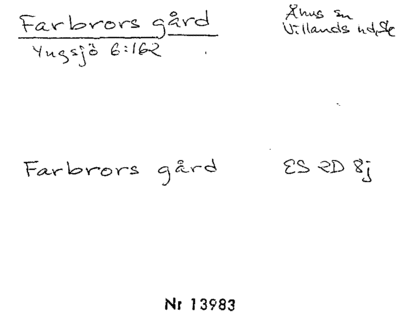 Farbrors gård
Åhus sn
Villands hd, Sk
Yngsjö 6:162
Farbrors gård
ES 2D 8j
Nr 13983